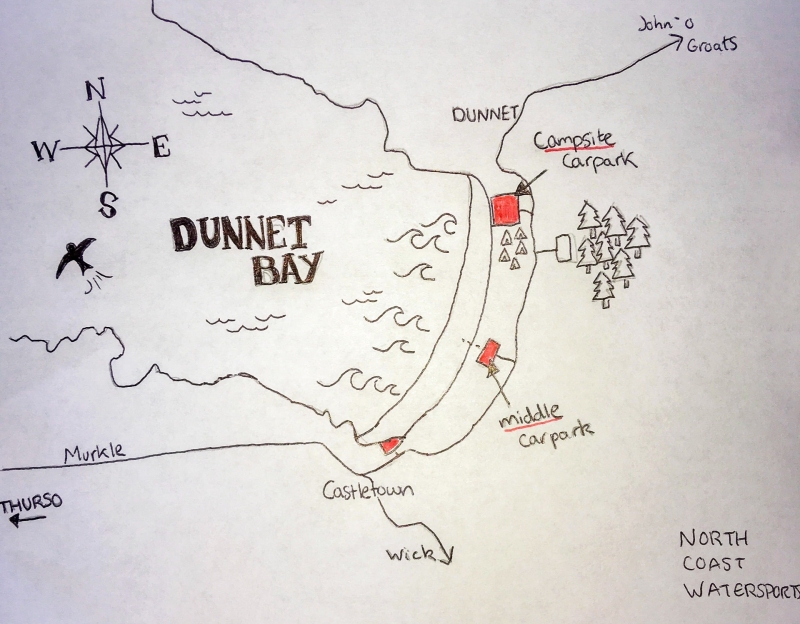 John-o
Groats
DUNNET
Campsite
Carpark
N
W E
S
DUNNET
BAY
middle
carpark
Murkle
THURSO
Castletown
Wick
NORTH
COAST
WATERSPORTS